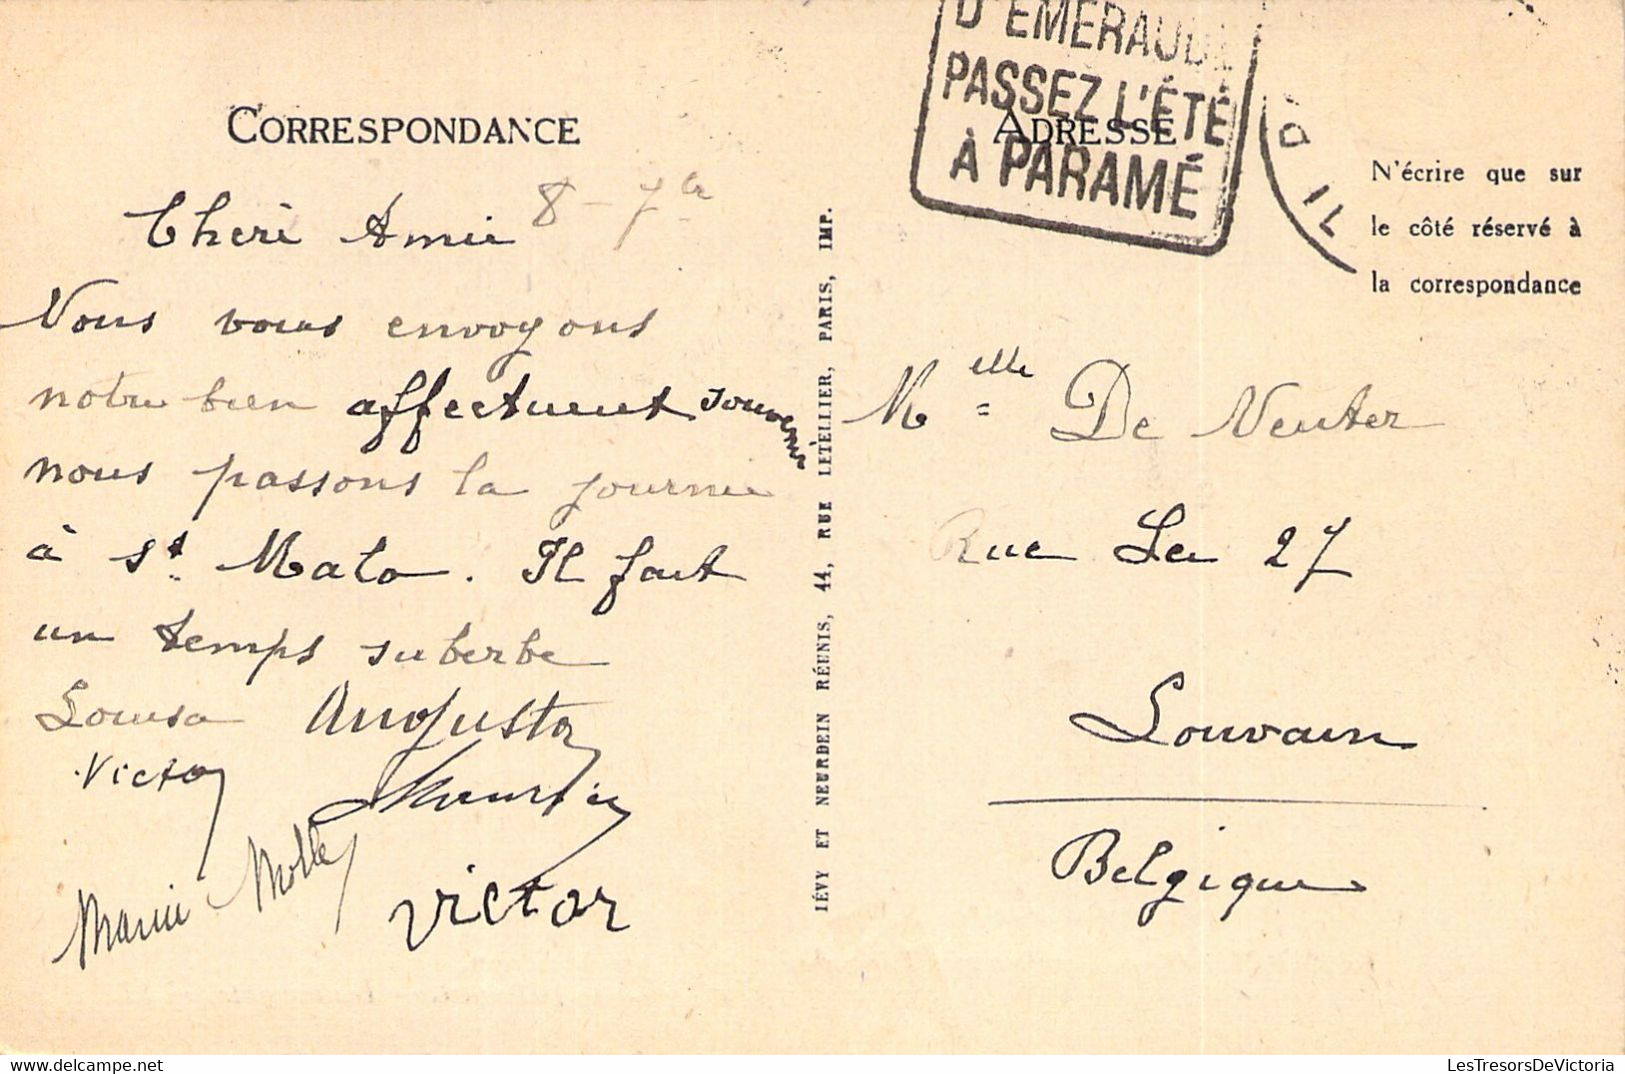 D'EMERAUDE
PASSEZ L'ÉTÉ
À PARAMÉ
D'IL
CORRESPONDANCE
ADRESSE
N'écrire que sur
le côté réservé à
la correspondance
Cheri Amie 8-7bre
Nous vous envoyons
notre bien affectueux souvenir
nous passons la journee
à St. Malo. Il fait
un temps suberbe
Louisa Augusta
Victor
Marie Molle
Victor
LÉVY ET NEURDEIN RÉUNIS, 44, RUE LETELLIER, PARIS, IMP.
Melle De Neuter
Rue Lei 27
Louvain
Belgique
LesTresorsDeVictoria